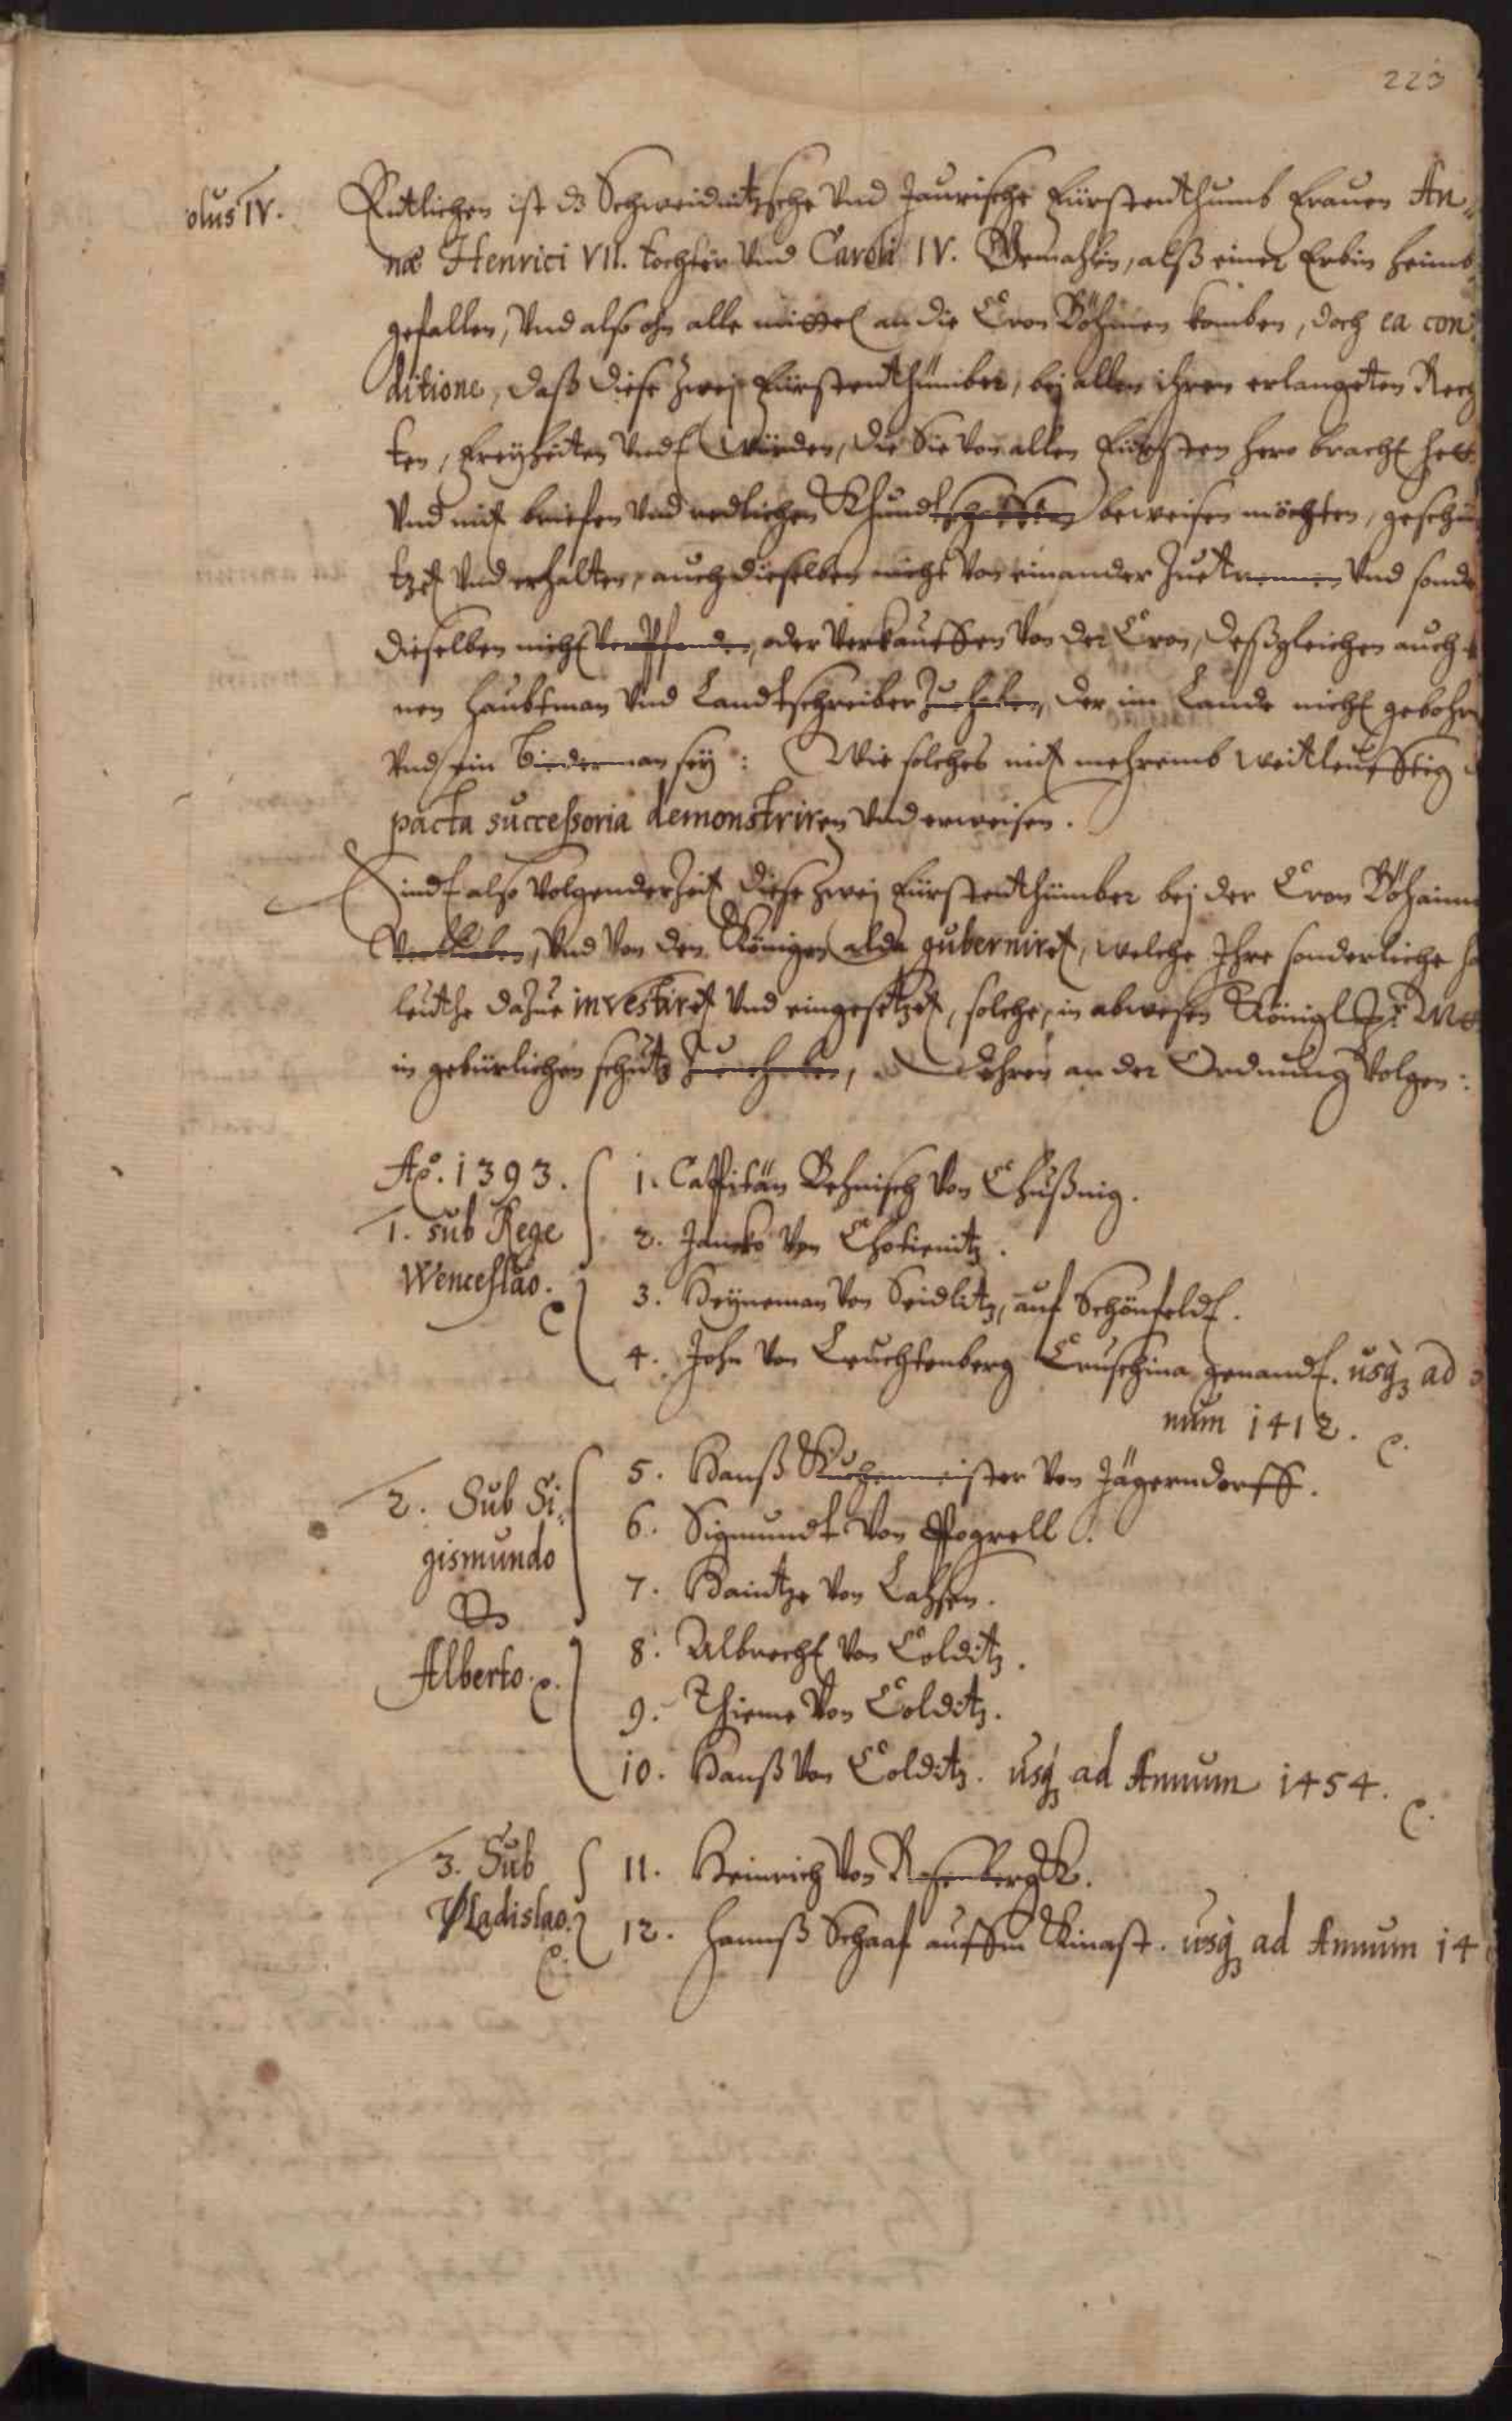 223
olus IV.
Entlichen ist dz Schweidnitzsche Vnd Jaurische Fürstenthumb Frauen An„
næ Henrici VII. tochter Vnd Caroli IV. Gemahlin, alß einer Erbin heimb„
gefallen, Vnd also ohn alle mittel an die Cron Böhmen komben, doch ea con„
ditione, daß diese zwej Fürstenthümber, bej allen ihren erlangeten Rech
ten, Freyheiten Vndt Würden, die Sie Von allen Fürsten hero bracht hett
Vnd mit briefen Vnd redlichen Khundtschafften beweisen möchten, geschü
tzet Vnd erhalten, auch dieselben nicht Von einander Zuetrennen Vnd sond
dieselben nicht Verpfenden, oder Verkauffen Von der Cron, deßgleichen auch
nen haubtman Vnd Landtschreiber Zuehaben, der im Lande nicht gebohr
Vnd ein biederman sey: Wie solches mit mehrermb weitleufftig
pacta successoria demonstriren Vnd erweisen.
Sindt also Volgender Zeit diese zwej Fürstenthümber bej der Cron Böhaimb
Verblieben, Vnd Von den Königen alda guberniret, welche Ihre sonderliche ha
leuthe dazue investiret Vnd eingesetzet, solche, in abwesen Königl Mt
in gebürlichen schutz Zuehaben, Dehren an der Ordnung Volgen:
Ao. 1393.
1. sub Rege
Wenceslao.
1. Cappitän Behnisch Von Chußnig.
2. Jancko Von Chotienitz.
3. Heyneman Von Seidlitz, auf Schönfeldt.
4. John Von Leuchtenberg Cruschina genandt. usq; ad
num 1412.
2. Sub Si„
gismundo
&
Alberto.
5. Hanß Kuchenmeister Von Jägerndorff.
6. Sigmundt Von Pogrell.
7. Haintze Von Laßen.
8. Albrecht Von Colditz.
9. Thieme Von Colditz.
10. Hanß Von Colditz. usq; ad Annum 1454.
3. Sub
Vladislao.
11. Heinrich Von Rosenbergk.
12. Hannß Schaaf auffm Kinast. usq; ad Annum 14